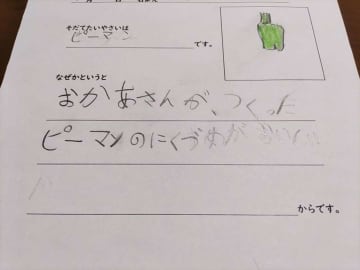 そだてたいやさいは
ピーマン
です。
なぜかというと
おかあさんが、つくった
ピーマンのにくづめが
からです。